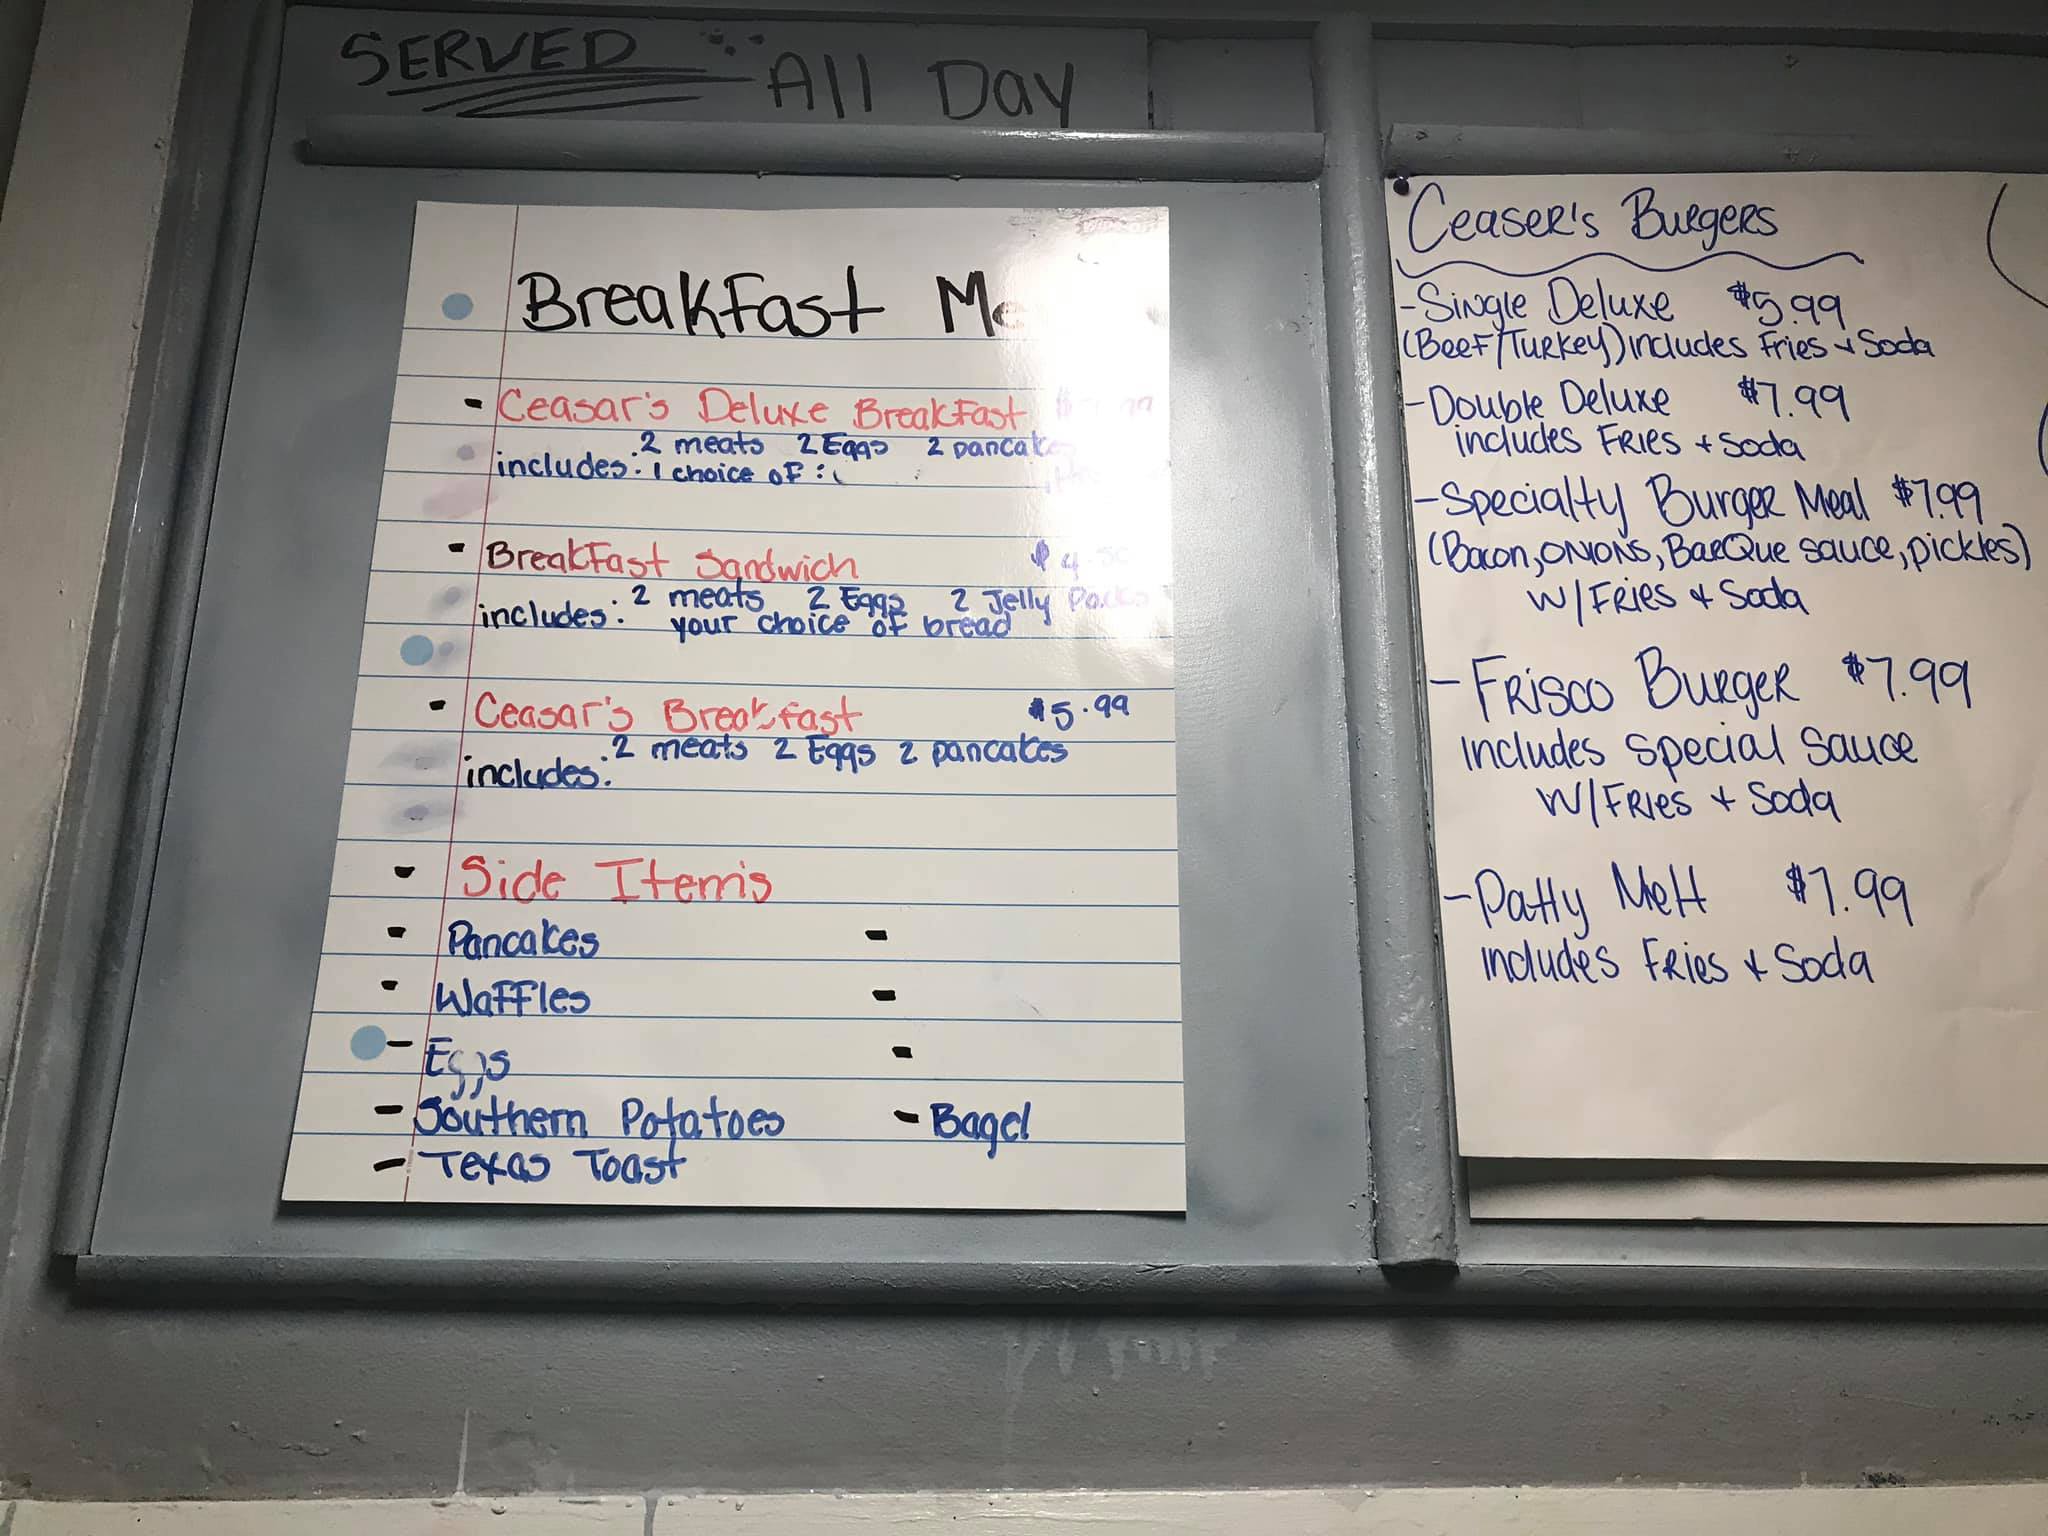 SERVED All Day
BreakFast
- Ceasar's Deluxe BreakFast
includes: 2 meats 2 Eggs 2 pancakes
1 choice of :
- BreakFast Sandwich $4.50
includes: 2 meats 2 Eggs 2 Jelly Packs
your choice of bread
- Ceasar's Breakfast $5.99
includes: 2 meats 2 Eggs 2 pancakes
- Side Item's
- Pancakes -
- Waffles -
- Eggs -
- Southern Potatoes - Bagel
- Texas Toast
Ceaser's Burgers
- Single Deluxe $5.99
(Beef/Turkey) includes Fries + Soda
- Double Deluxe $7.99
includes Fries + Soda
- Specialty Burger Meal $7.99
(Bacon, onions, BarQue sauce, pickles)
w/Fries + Soda
- Frisco Burger $7.99
includes special sauce
w/Fries + Soda
- Patty Melt $7.99
includes Fries + Soda